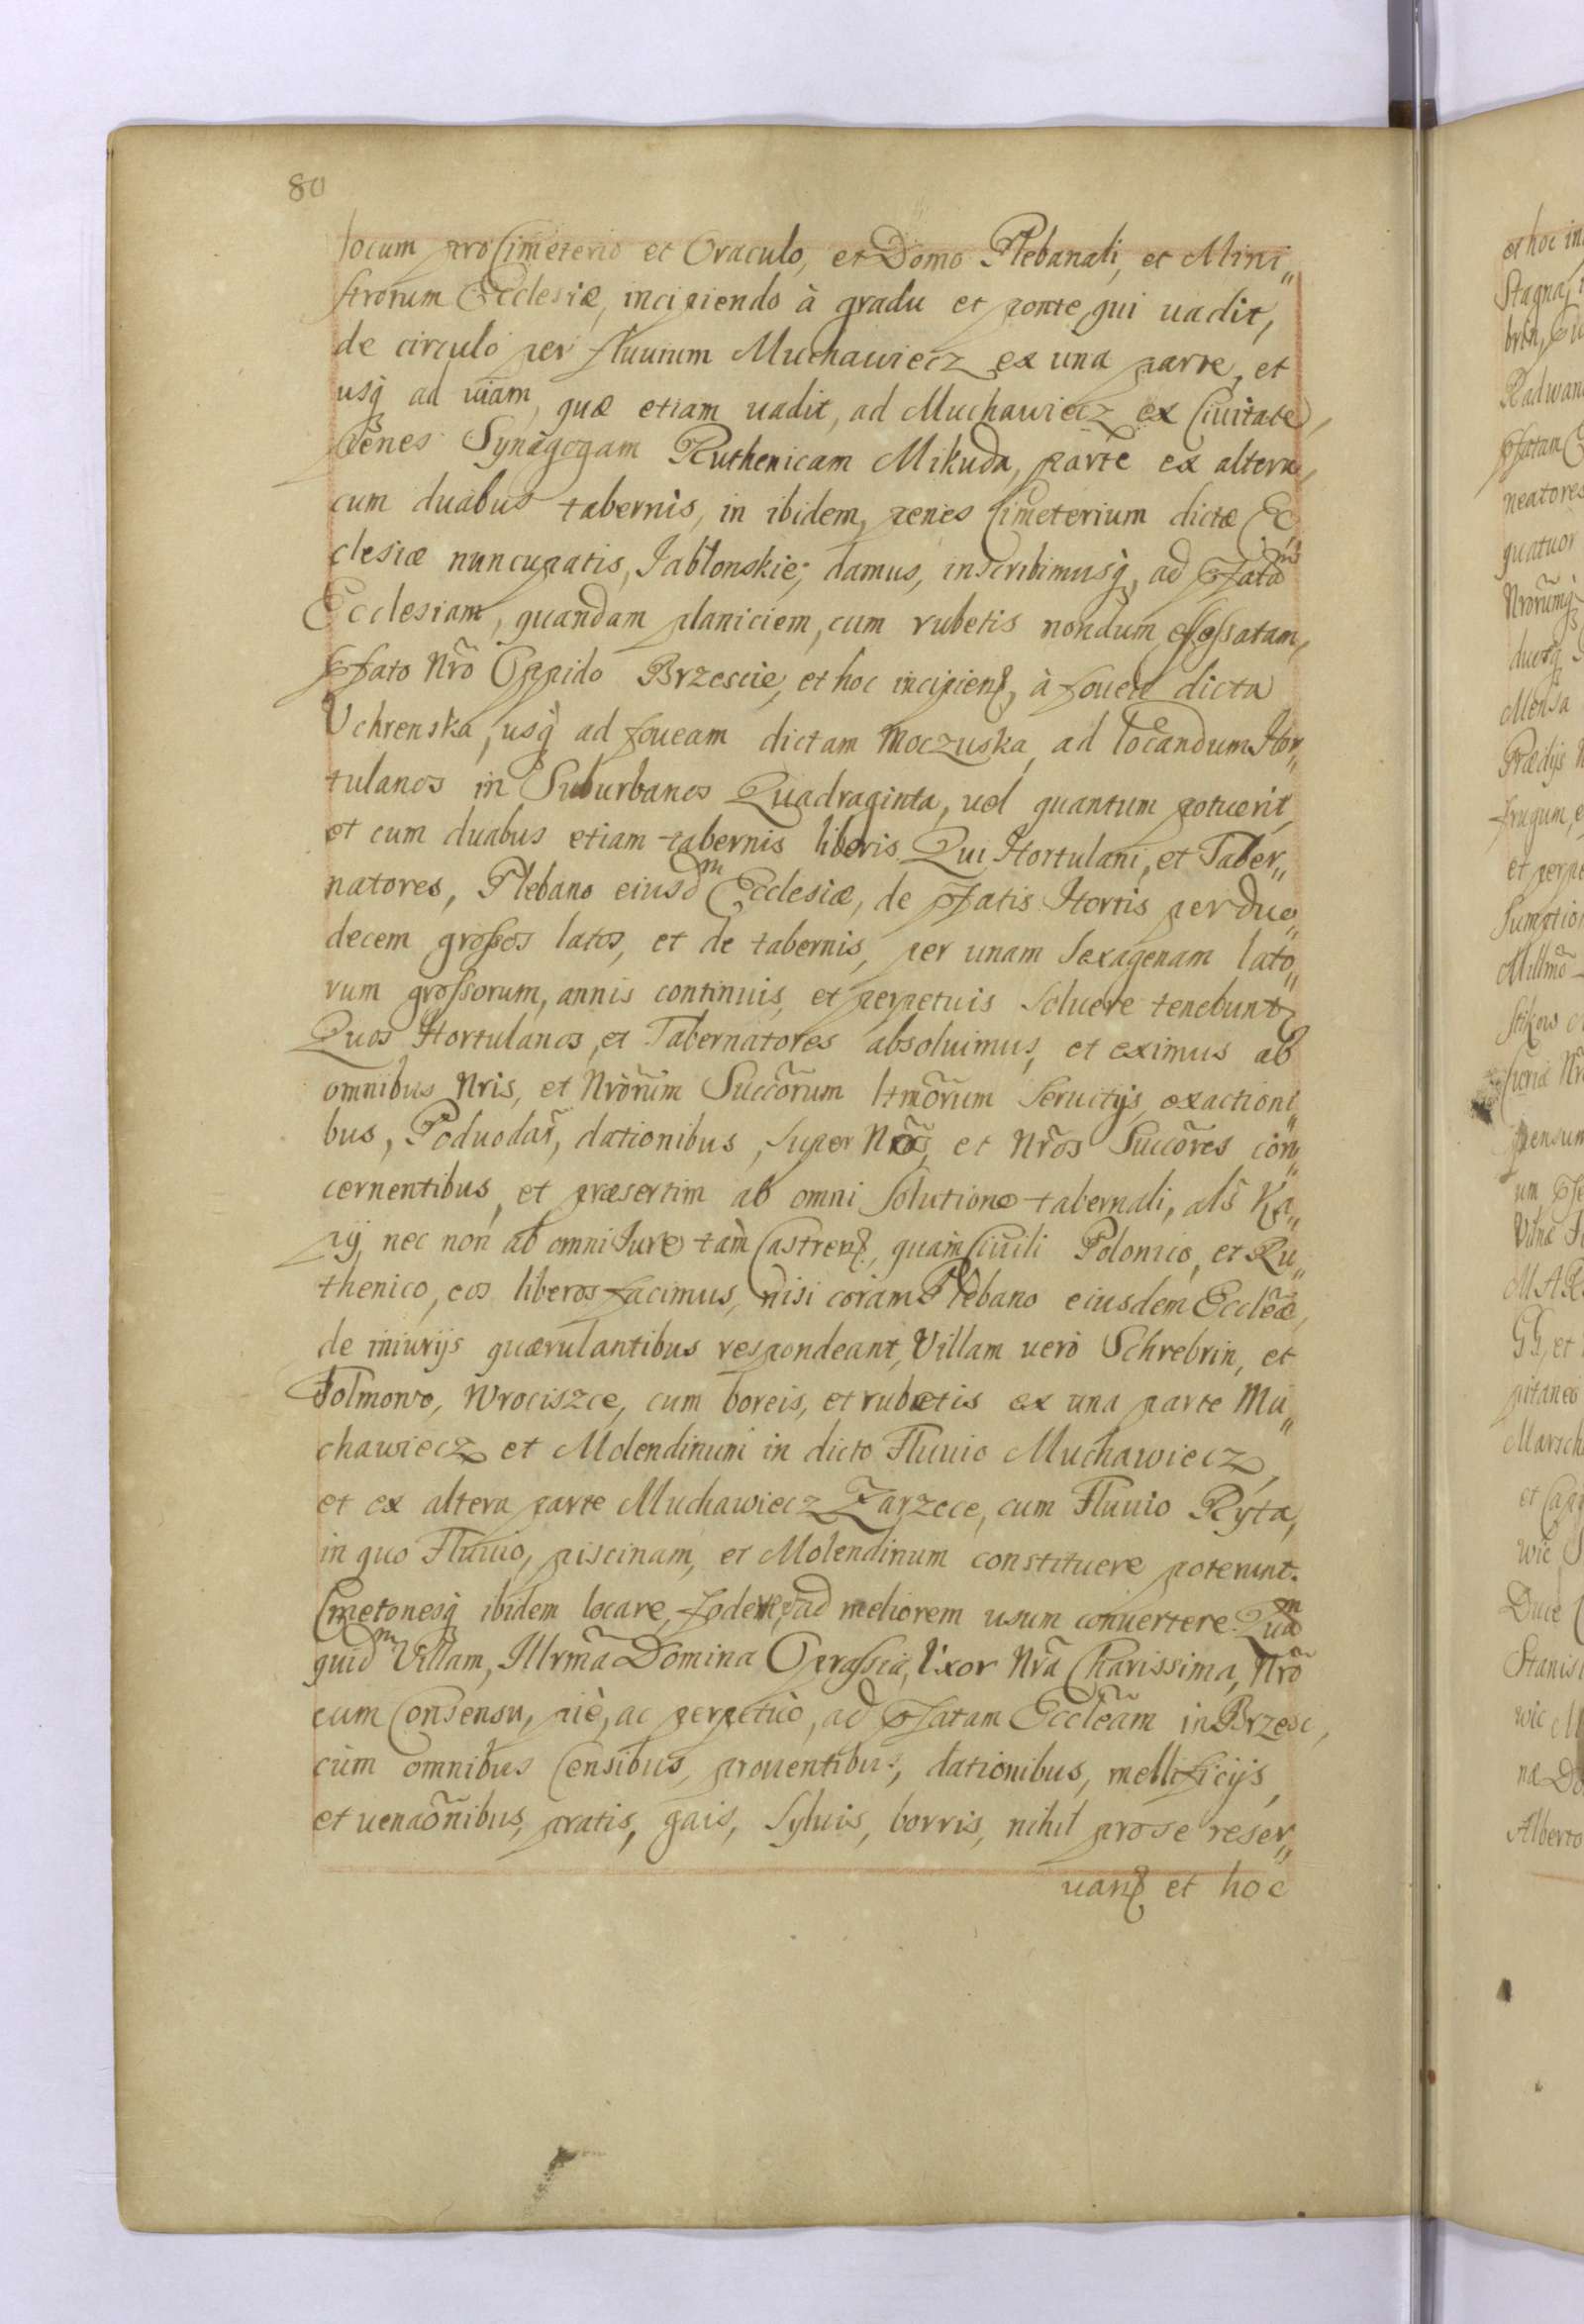 80
locum pro Cimeterio et Oraculo, et Domo Plebanali, et Mini„
strorum Ecclesiæ, incipiendo à gradu et ponte, qui uadit,
de circulo per fluuium Muchawiecz ex una parte, et
usq̃ ad uiam, quæ etiam uadit, ad Muchawiecz ex Ciuitate,
penes Synagogam Ruthenicam Mikuda, parte ex altera,
cum duabus tabernis, in ibidem, penes Cimeterium dictæ Ec„
clesiæ nuncupatis, Jablonskie; damus, inscribimusq̃, ad pfatã
Ecclesiam, quandam planiciem, cum rubetis nondum effossatam,
pfato Nrõ Oppido Brzescie, et hoc incipien, à fouea dicta
Vchrenska, usq̃ ad foueam dictam Moczuska, ad locandum Hor„
tulanos in Suburbanos Quadraginta, uel quantum potuerit,
et cum duabus etiam tabernis liberis. Qui Hortulani, et Taber„
natores, Plebano eiusdm Ecclesiæ, de pfatis Hortis per duo„
decem grossos latos, et de tabernis, per unam sexagenam lato„
rum grossorum, annis continuis, et perpetuis soluere tenebunt
Quos Hortulanos, et Tabernatores absoluimus, et eximus ab
omnibus Nris, et Nrõrum Succõrum ltmõrum seruitijs, exactioni„
bus, Poduodar̃, dationibus, super Nõs, et Nrõs Succõres con„
cernentibus, et præsertim ab omni solutione tabernali, als̃ Ka„
pij, nec non ab omni Jure tàm Castren, quàm Ciuili Polonico, et Ru„
thenico, eos liberos facimus, nisi coram Plebano eiusdem Ecclẽæ,
de iniurijs quærulantibus respondeant, Villam uerò Schrebrin, et
Tolmowo, Wrociszce, cum boreis, et rubetis ex una parte Mu„
chawiecz et Molendinum in dicto Fluuio Muchawiecz,
et ex altera parte Muchawiecz Zarzece, cum Fluuio Ryta,
in quo Fluuio, piscinam, et Molendinum constituere poterunt.
Cmetonesq̃ ibidem locare, fodere, ad meliorem usum conuertere. Quãm
quidm Villam, Illrmã Domina Oprassia, Uxor Nrã Charissima, Nrõ
cum Consensu, piè, ac perpetuò, ad pfatam Ecclẽam in Brzesc,
cùm omnibus Censibus, prouentibus, dationibus, mellificijs,
et uenaõnibus, pratis, gais, syluis, borris, nihil pro se reser„
uan et hoc
et hoc in
Stagna
Radwan
pfatam
neatores
quatuor
Nrorumq̃
Mensa
Prædijs
frugum, e
et perpe
Sumptio
Stikow
pensum
um
Vilnæ
MAR
GG, et
pitaneo
Marsch
et Cap
wic
Duce
Stanis
wic
næ Do
Alberto